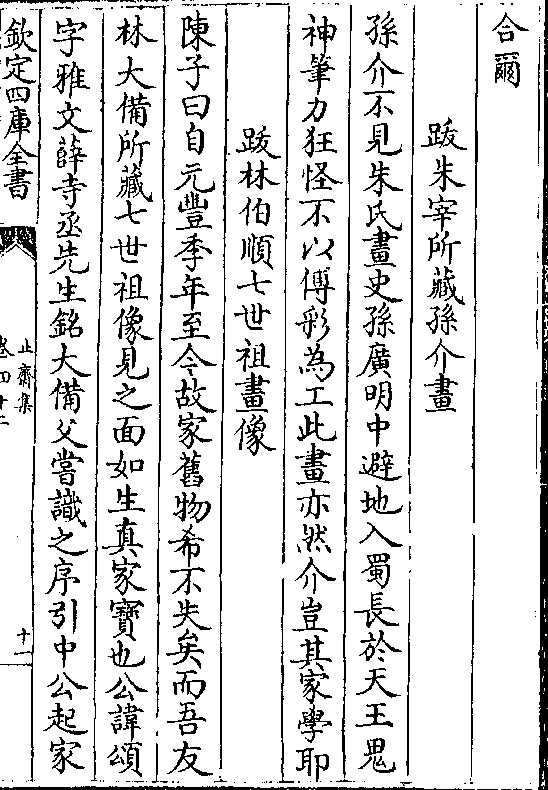 合爾
跋朱宰所藏孫介畫
孫介不見朱氏畫史孫廣明中避地入蜀長於天王鬼
神筆力狂怪不以傅彩為工此畫亦然介豈其家學耶
跋林伯順七世祖畫像
陳子曰自元豐季年至今故家舊物希不失矣而吾友
林大備所藏七世祖像見之面如生真家寶也公諱頌
字雅文薛寺丞先生銘大備父嘗識之序引中公起家
欽定四庫全書
止齋集
卷四十二
十一